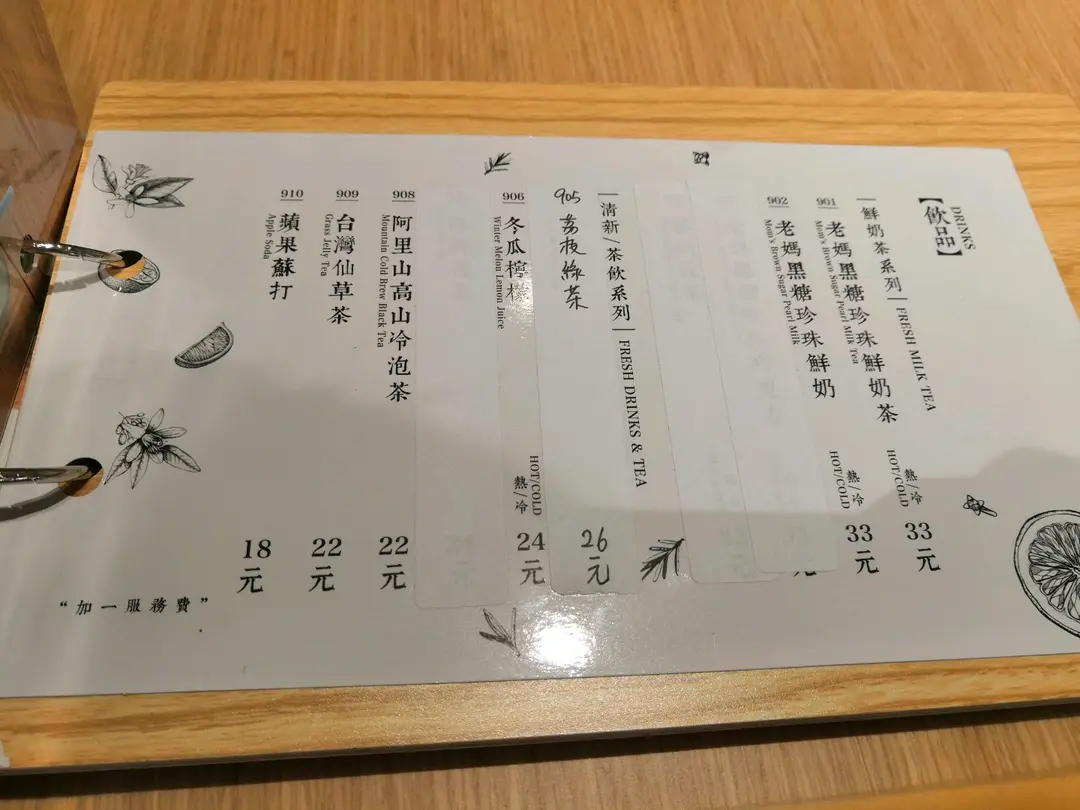 【飲品】
DRINKS
鮮奶茶系列 | FRESH MILK TEA
901 老媽黑糖珍珠鮮奶茶 熱/冷 33元
Mom's Brown Sugar Pearl Milk Tea HOT/COLD
902 老媽黑糖珍珠鮮奶 熱/冷 33元
Mom's Brown Sugar Pearl Milk HOT/COLD
清新/茶飲系列 | FRESH DRINKS & TEA
905 荔枝綠茶 26元
906 冬瓜檸檬 熱/冷 24元
Winter Melon Lemon Juice HOT/COLD
908 阿里山高山冷泡茶 22元
Mountain Cold Brew Black Tea
909 台灣仙草茶 22元
Grass Jelly Tea
910 蘋果蘇打 18元
Apple Soda
“加一服務費”